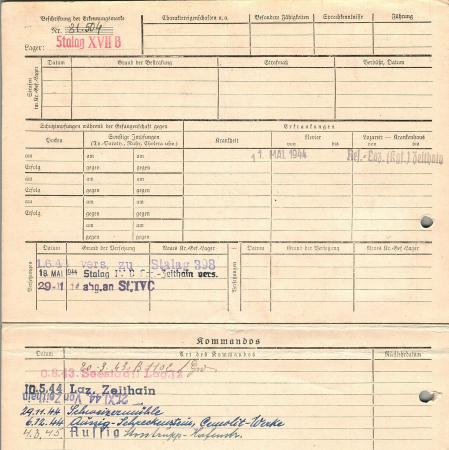 Beschriftung der Erkennungsmarke
Nr. 81.504
Lager: Stalag XVII B
Charaktereigenschaften u.a.
Besondere Fähigkeiten
Sprachkenntnisse
Führung
Strafen im Kr.-Gef.-Lager
Datum
Grund der Bestrafung
Strafmaß
Verbüßt, Datum
Schutzimpfungen während der Gefangenschaft gegen
Erkrankungen
Pocken
Sonstige Impfungen
(Ty.-Paraty., Ruhr, Cholera usw.)
Krankheit
Revier
von bis
Lazarett — Krankenhaus
von bis
am am am
11. MAI 1944 Res.-Laz. (Kgf.) Zeithain
Erfolg gegen gegen
am am am
Erfolg gegen gegen
am am am
Erfolg gegen gegen
am am
gegen gegen
am am
gegen gegen
Versetzungen
Datum
Grund der Versetzung
Neues Kr.-Gef.-Lager
Versetzungen
Datum
Grund der Versetzung
Neues Kr.-Gef.-Lager
1.6.44 vers. zu Stalag 398
18. MAI 1944 Stalag Zeithain vers.
29.11 14 abg.an St.IVC
Kommandos
Datum
Art des Kommandos
Rückkehrdatum
20.3.43
10.5.44 Laz. Zeithain
Von Zeithain
29.11.44 Schweizermühle
6.12.44 Aussig-Schreckenstein,
4.3.45 Aussig